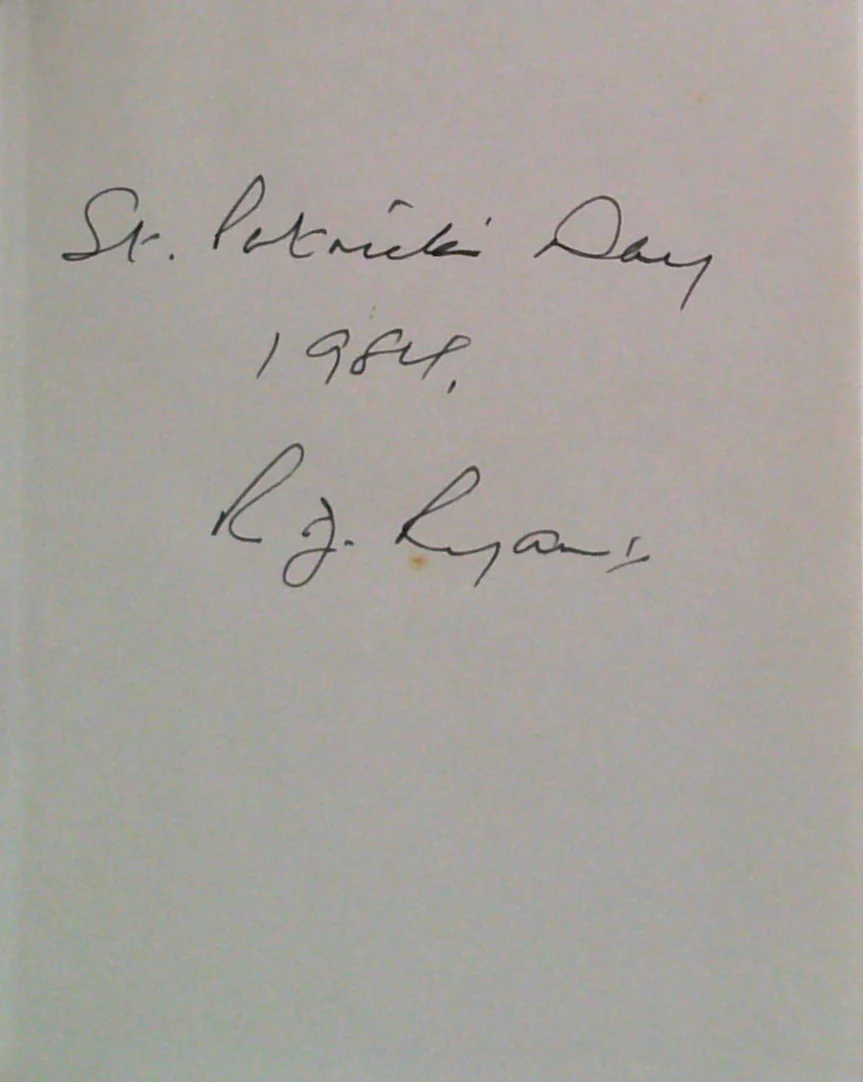 St. Patrick's Day
1984.
R J. Ryan